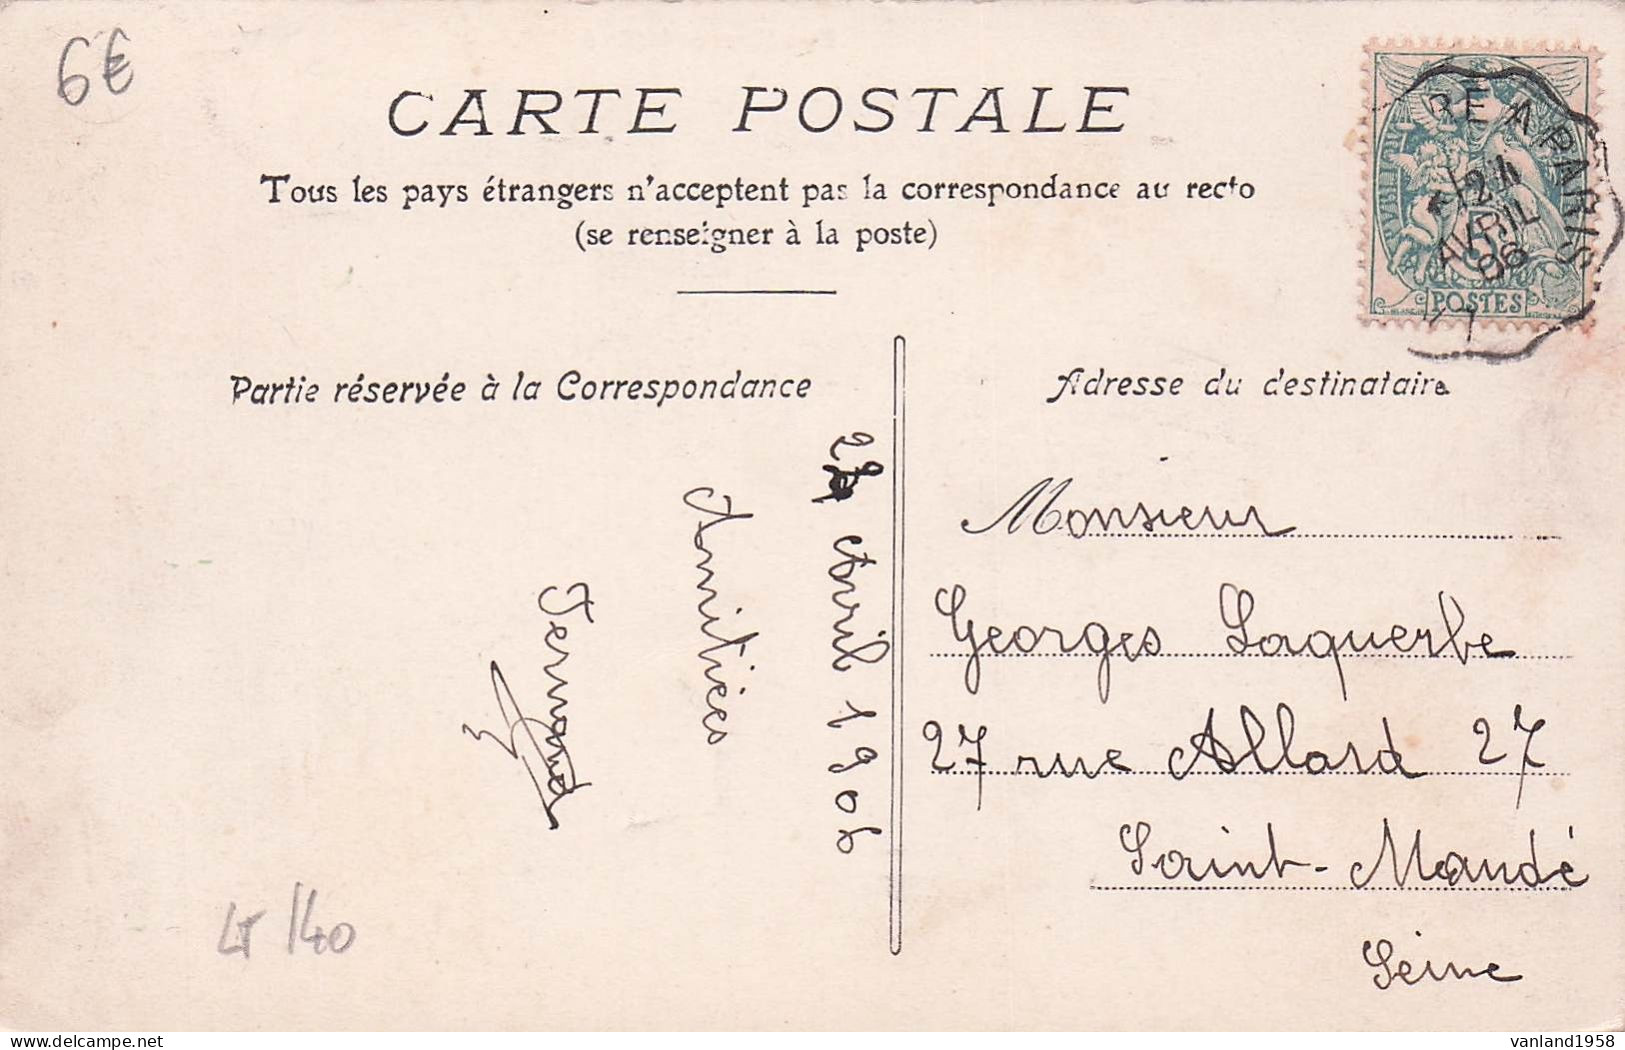 6€
CARTE POSTALE
Tous les pays étrangers n'acceptent pas la correspondance au recto
(se renseigner à la poste)
RE A PARIS
AVRIL
06
5
POSTES
Partie réservée à la Correspondance
Adresse du destinataire
Avril 1906
Amitiées
Fernand
Monsieur
Georges Laquerbe
27 rue Allard 27
Saint-Mandé
Seine
LT/40
delcampe.net
vanland1958